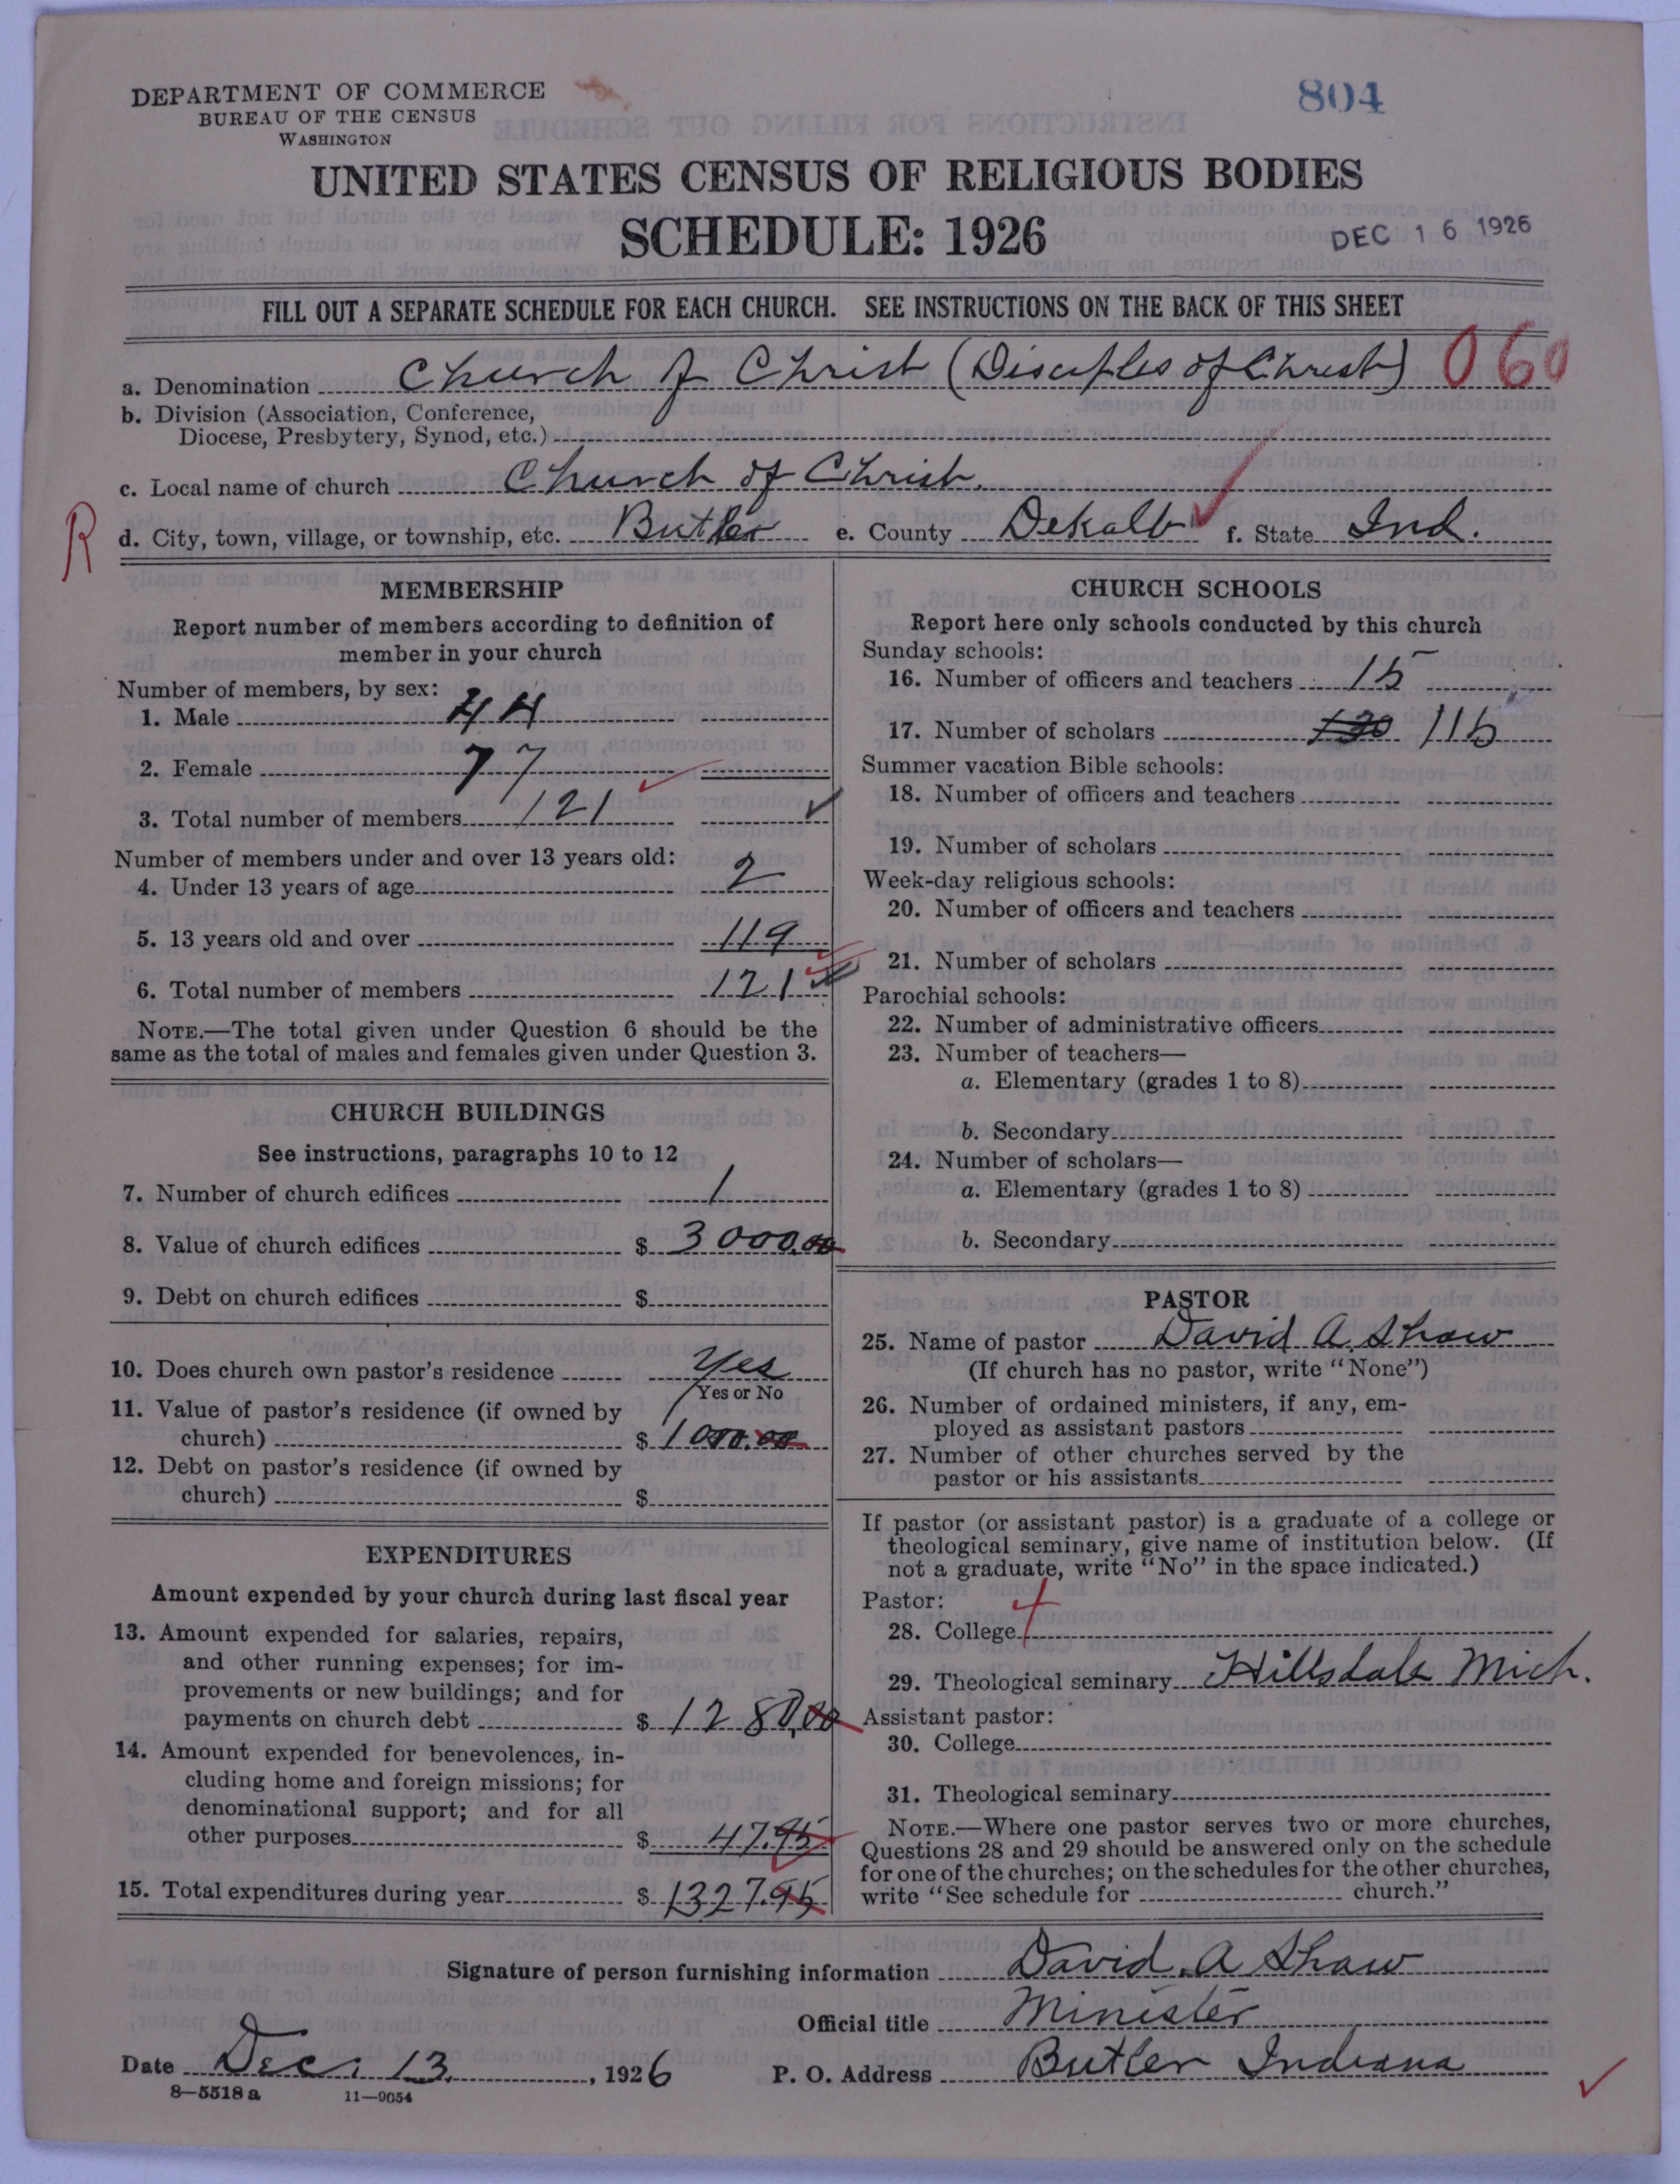 DEPARTMENT OF COMMERCE
BUREAU OF THE CENSUS
WASHINGTON
804
UNITED STATES CENSUS OF RELIGIOUS BODIES
SCHEDULE: 1926
DEC 16 1926
FILL OUT A SEPARATE SCHEDULE FOR EACH CHURCH. SEE INSTRUCTIONS ON THE BACK OF THIS SHEET
a. Denomination Church of Christ (Disciples of Christ) 060
b. Division (Association, Conference,
Diocese, Presbytery, Synod, etc.)
c. Local name of church Church of Christ.
R d. City, town, village, or township, etc. Butler e. County Dekalb f. State Ind.
MEMBERSHIP
Report number of members according to definition of
member in your church
Number of members, by sex:
1. Male 44
2. Female 77
3. Total number of members 121
Number of members under and over 13 years old:
4. Under 13 years of age 2
5. 13 years old and over 119
6. Total number of members 121
NOTE.—The total given under Question 6 should be the
same as the total of males and females given under Question 3.
CHURCH BUILDINGS
See instructions, paragraphs 10 to 12
7. Number of church edifices 1
8. Value of church edifices $ 3000.00
9. Debt on church edifices $
10. Does church own pastor's residence Yes
Yes or No
11. Value of pastor's residence (if owned by
church) $ 1000.00
12. Debt on pastor's residence (if owned by
church) $
EXPENDITURES
Amount expended by your church during last fiscal year
13. Amount expended for salaries, repairs,
and other running expenses; for im-
provements or new buildings; and for
payments on church debt $ 1280.00
14. Amount expended for benevolences, in-
cluding home and foreign missions; for
denominational support; and for all
other purposes $ 47.95
15. Total expenditures during year $ 1327.95
CHURCH SCHOOLS
Report here only schools conducted by this church
Sunday schools:
16. Number of officers and teachers 15
17. Number of scholars 130 115
Summer vacation Bible schools:
18. Number of officers and teachers
19. Number of scholars
Week-day religious schools:
20. Number of officers and teachers
21. Number of scholars
Parochial schools:
22. Number of administrative officers
23. Number of teachers—
a. Elementary (grades 1 to 8)
b. Secondary
24. Number of scholars—
a. Elementary (grades 1 to 8)
b. Secondary
PASTOR
25. Name of pastor David A. Shaw
(If church has no pastor, write "None")
26. Number of ordained ministers, if any, em-
ployed as assistant pastors
27. Number of other churches served by the
pastor or his assistants
If pastor (or assistant pastor) is a graduate of a college or
theological seminary, give name of institution below. (If
not a graduate, write "No" in the space indicated.)
Pastor:
28. College
29. Theological seminary Hillsdale Mich.
Assistant pastor:
30. College
31. Theological seminary
NOTE.—Where one pastor serves two or more churches,
Questions 28 and 29 should be answered only on the schedule
for one of the churches; on the schedules for the other churches,
write "See schedule for church."
Signature of person furnishing information David. A Shaw
Official title Minister
Date Dec. 13, 1926 P. O. Address Butler Indiana
8—5518 a 11—9054